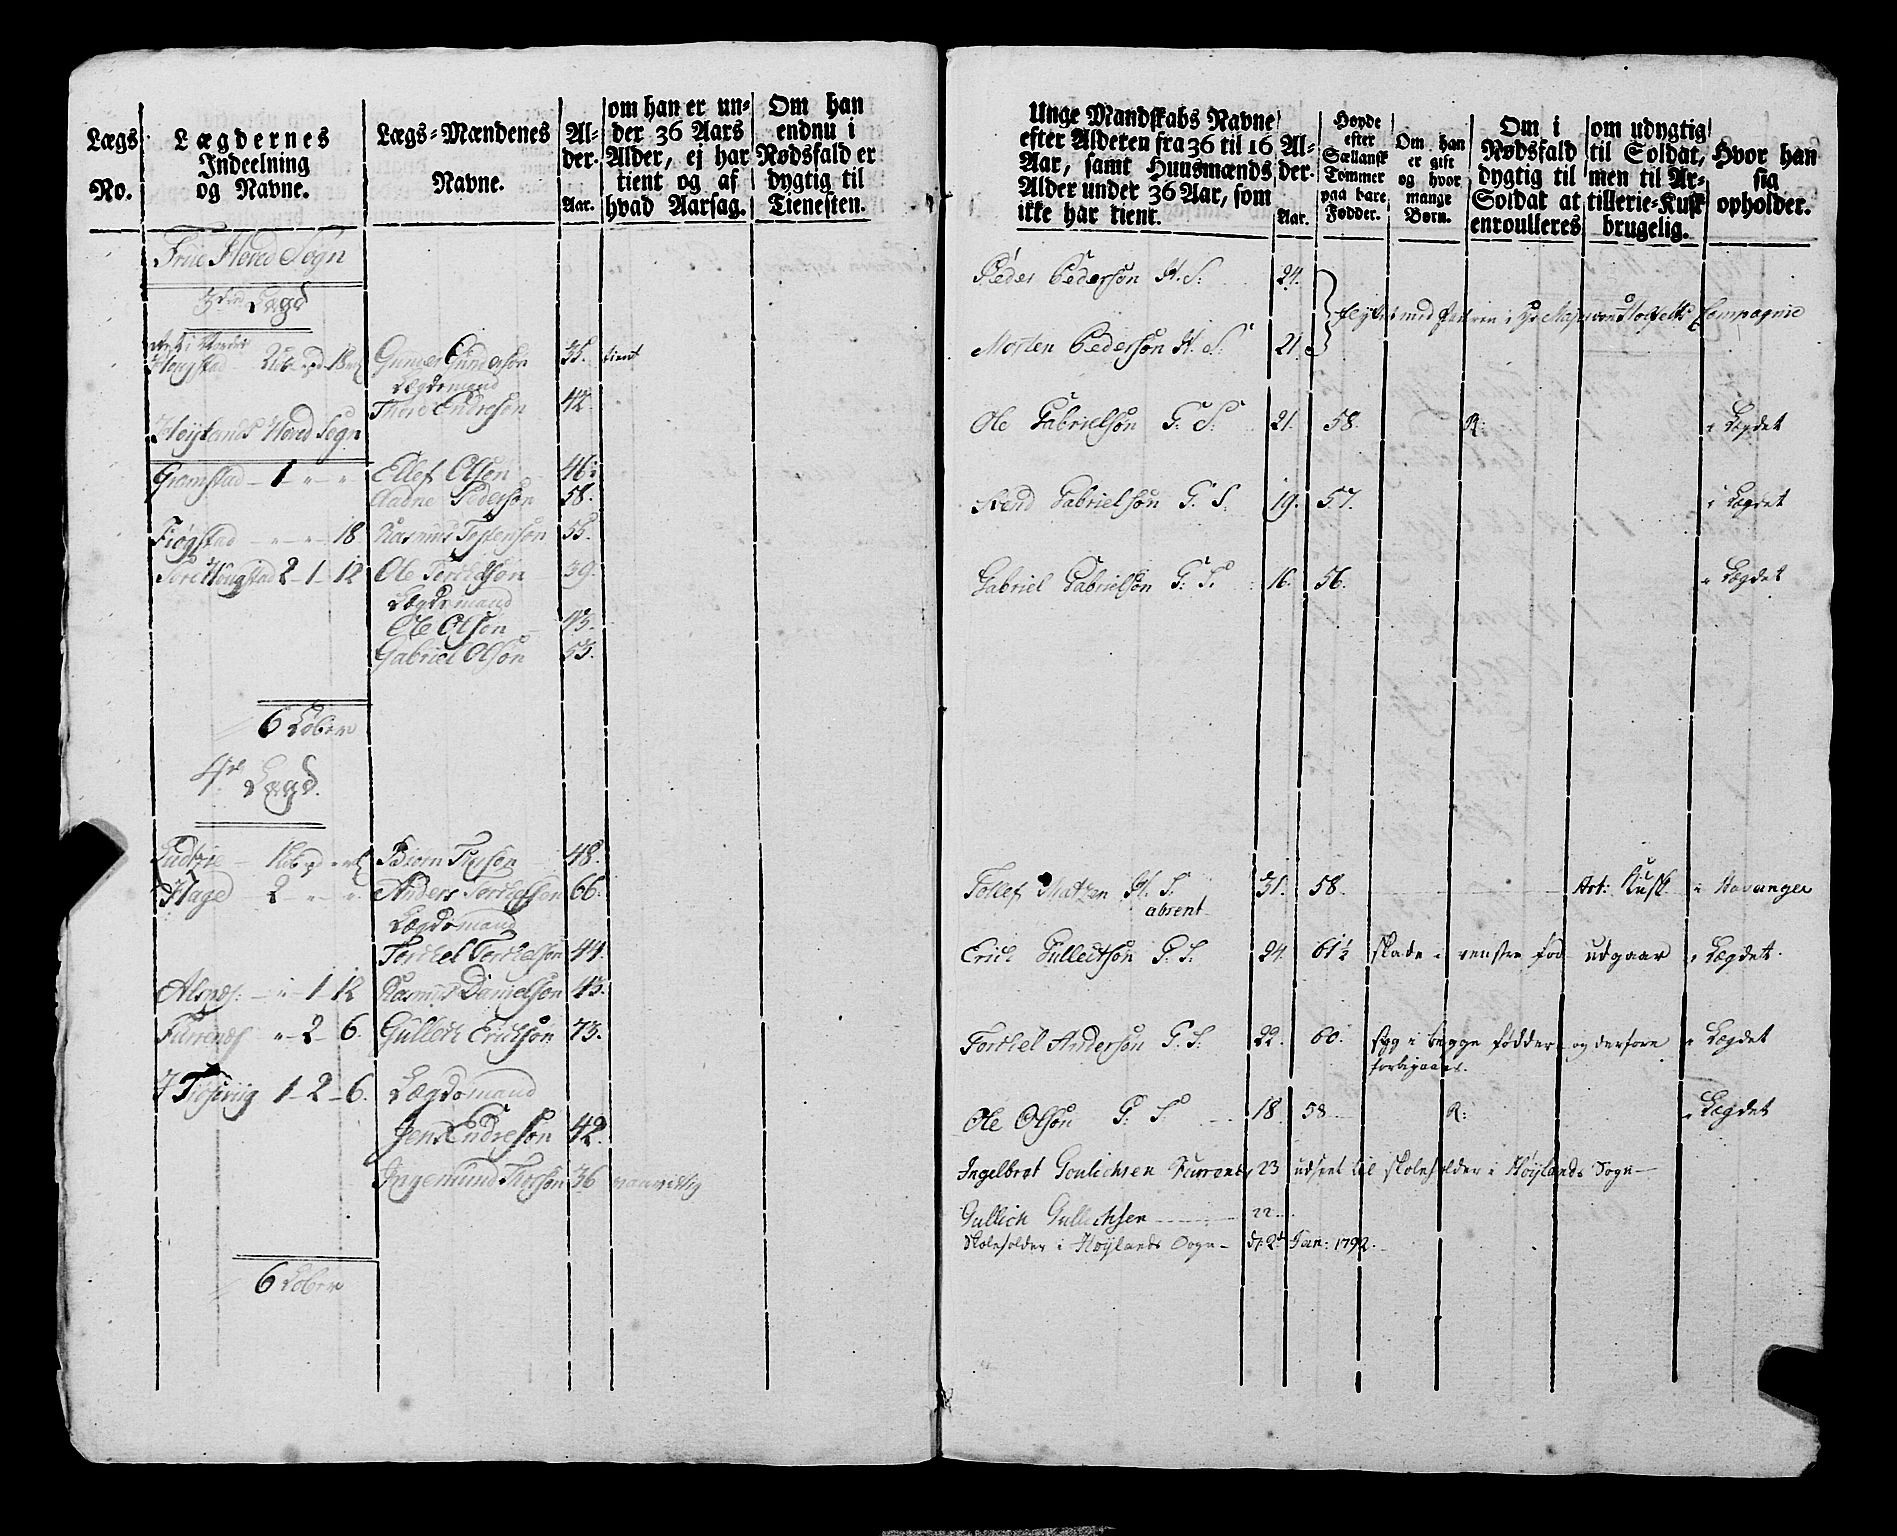 Lægs
No.
Lægdernes
Indeelning
og Navne.
Lægs-Mændenes
Navne.
Al-
der.
Aar.
om han er un-
der 36 Aars
Alder, ej har
tient og af
hvad Aarsag.
Om han
endnu i
Nødsfald er
dygtig til
Tienesten.
Hered Sogn
3die Lægd
Gunder Gunderson 35. tient
Lægdsmand
Thore Endreson 42.
Høylands Hered Sogn
Gramstad 1 " " Ellef Olsen 46
Aadne Pederson 58.
Fiogstad " " 18 Rasmus Tostenson 55.
Tore Hougstad 2-1-12 Ole Torkelson 39.
Lægdsmand
Ole Olson 43.
Gabriel Olson 53.
6 Løber
4de Lægd.
Biørn 48.
Hage 2 " " Anders Torkelson 66.
Lægdsmand
Torkel Torkelson 44.
" 1 12 Rasmus Danielson 43.
Furrenes " 2-6. Gulleck Erichson 73.
1-2-6. Lægdsmand
Jens Endreson 42.
Ingemund 36 vanvittig
6 Løber
Unge Mandskabs Navne
efter Alderen fra 36 til 16
Aar, samt Huusmænds
Alder under 36 Aar, som
ikke har tient.
Al-
der.
Aar.
Høyde
efter
Sællansk
Tommer
paa bare
Fødder.
Om han
er gift
og hvor
mange
Børn.
Om i
Nødsfald
dygtig til
Soldat at
enroulleres
om udygtig
til Soldat,
men til Ar-
tillerie-Kusk
brugelig.
Hvor han
sig
opholder.
Peder Pederson H. S. 24.
med i Hr Major Compagnie
Morten Pederson H. S. 21.
Ole Gabrielson G. S. 21. 58. R: i Lægdet
Svend Gabrielson G. S. 19. 57. i Lægdet
Gabriel Gabrielson G. S. 16. 56. i Lægdet
Tollef H. S. 31. 58. Art: Kusk i Stavanger
absent
Erich Gullechson G. S. 24. 61½ skade i venstre fod udgaar i Lægdet.
Torkel Anderson G. S. 22. 60. syg i begge fødder og derfore i Lægdet
forbigaaes.
Ole Olson G. S. 18. 58 R: i Lægdet
Ingelbret Goulichsen Furrenes 23 udseet til skoleholder i Høylands Sogn
Gullich Gullichsen 22
Skoleholder i Høylands Sogn d: 2d Jan: 1792.